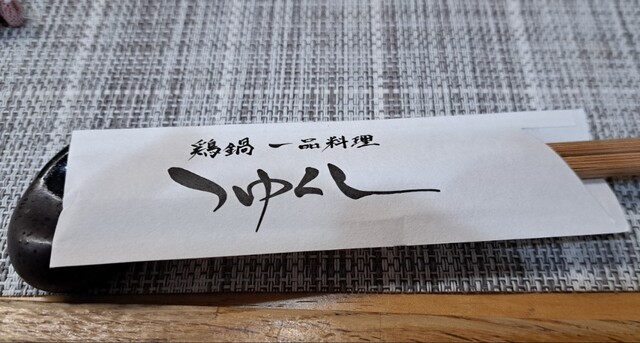 鶏鍋 一品料理
つゆくし